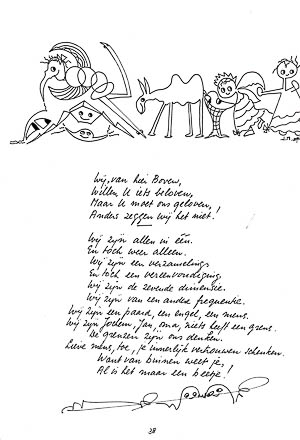 Wij, van hier Boven,
Willen U iets beloven,
Maar U moet ons geloven,
Anders zeggen wij het niet!
Wij zijn allen in één.
En toch weer alleen.
Wij zijn een verzameling
En toch een vereenvoudiging.
Wij zijn de zevende dimensie.
Wij zijn van een andere frequentie.
Wij zijn een paard, een engel, een mens.
Wij zijn Jochem, Jan, oma, niets heeft een grens.
De grenzen zijn ons denken.
Lieve mens, toe, je innerlijk vertrouwen schenken.
Want van binnen weet je,
Al is het maar een beetje!
38